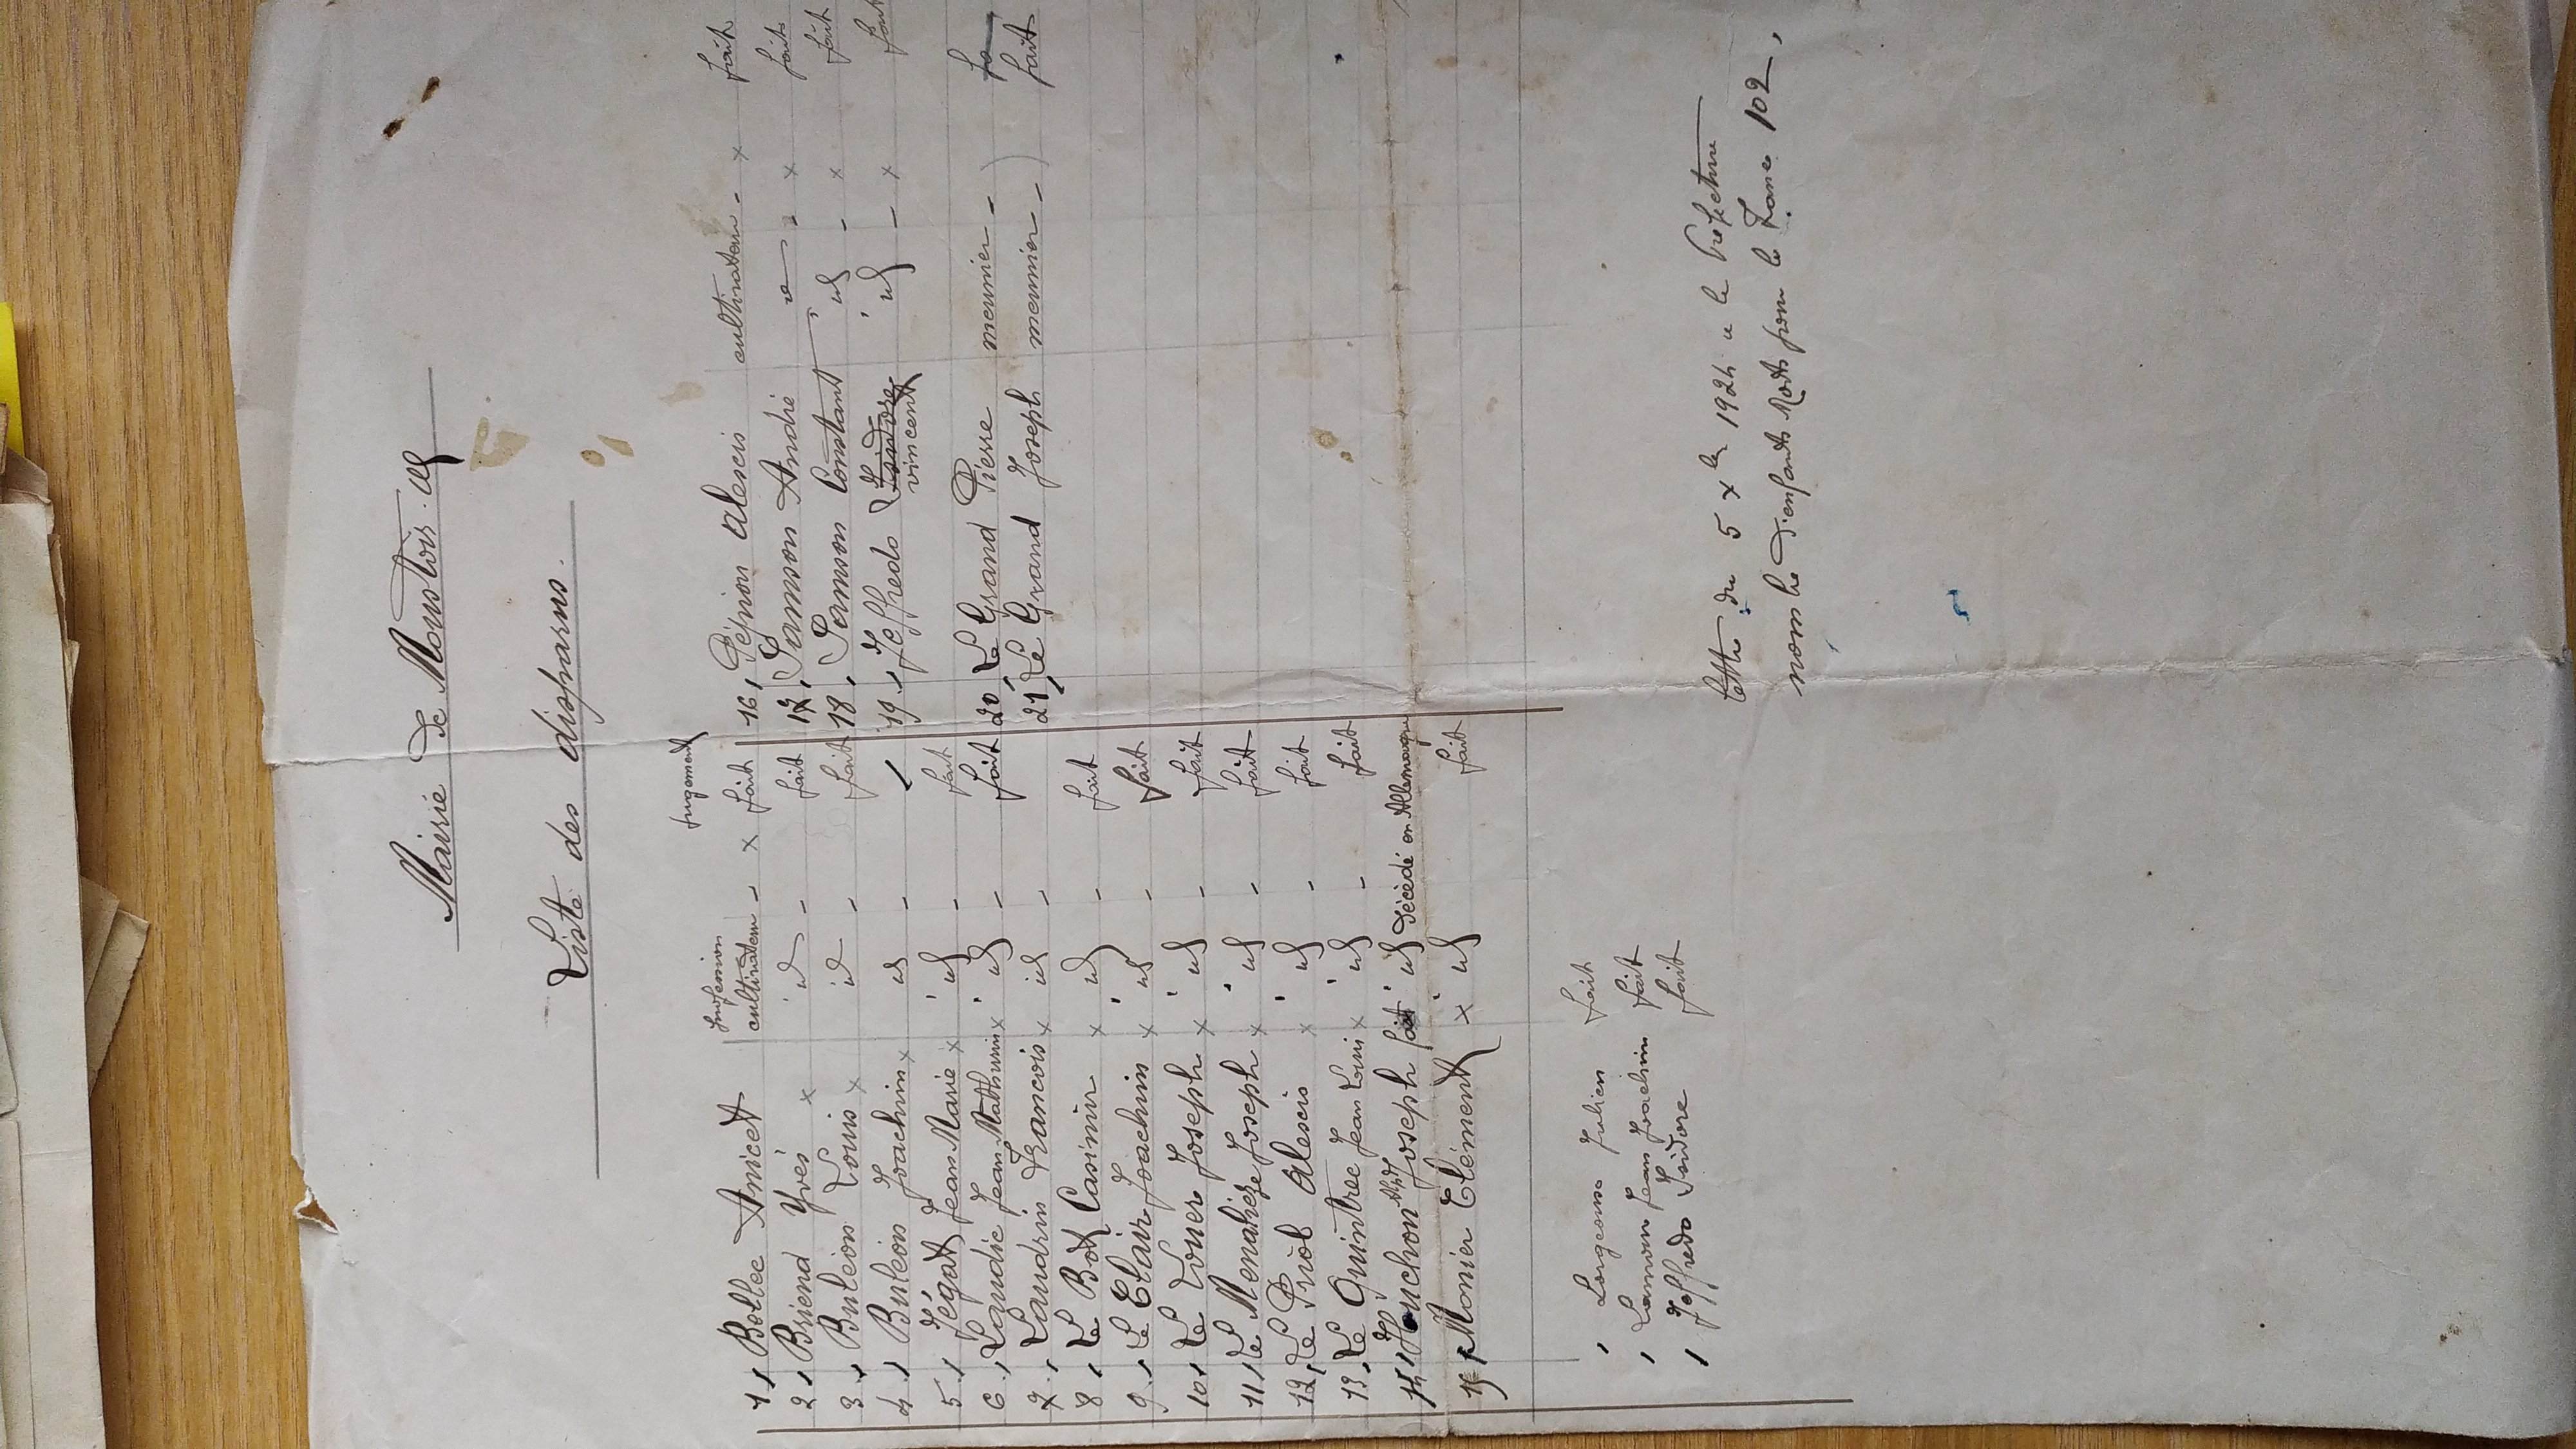 Mairie de Moustoir-ac
Liste des disparus.
profession jugement
1, Bellec Anicet cultivateur - x fait
2, Briend Yves x id - fait
3, Buléon Louis x id - fait
4, Buléon Joachim x id -
5, Jégat Jean Marie x id - fait
6, Landic Jean Mathurin x id - fait
7, Landrin Francois x id -
8, Le Bot Casimir x id - fait
9, Le Clair Joachim x id - fait
10, Le Louer Joseph x id - fait
11, Le Menahèze Joseph x id - fait
12, Le Priol Alexis x id - fait
13, Le Quintrec Jean Louis x id - fait
14, Huchon Joseph fait id décédé en Allemagne
15, Monier Clément x id fait
16, Pépion Alexis cultivateur - x fait
17, Samson André - x fait
18, Samson Constant id - x fait
19, Jeffredo Isidore vincent id - x fait
20, Le Grand Pierre meunier - )
21, Le Grand Joseph meunier - ) fait
, Lorgeoux Julien fait
, Lamour Jean Joachim fait
, Joffredo Isidore fait
Lettre du 5 xbre 1924 a la Préfecture
nombre d'enfants Morts pour la France 102,